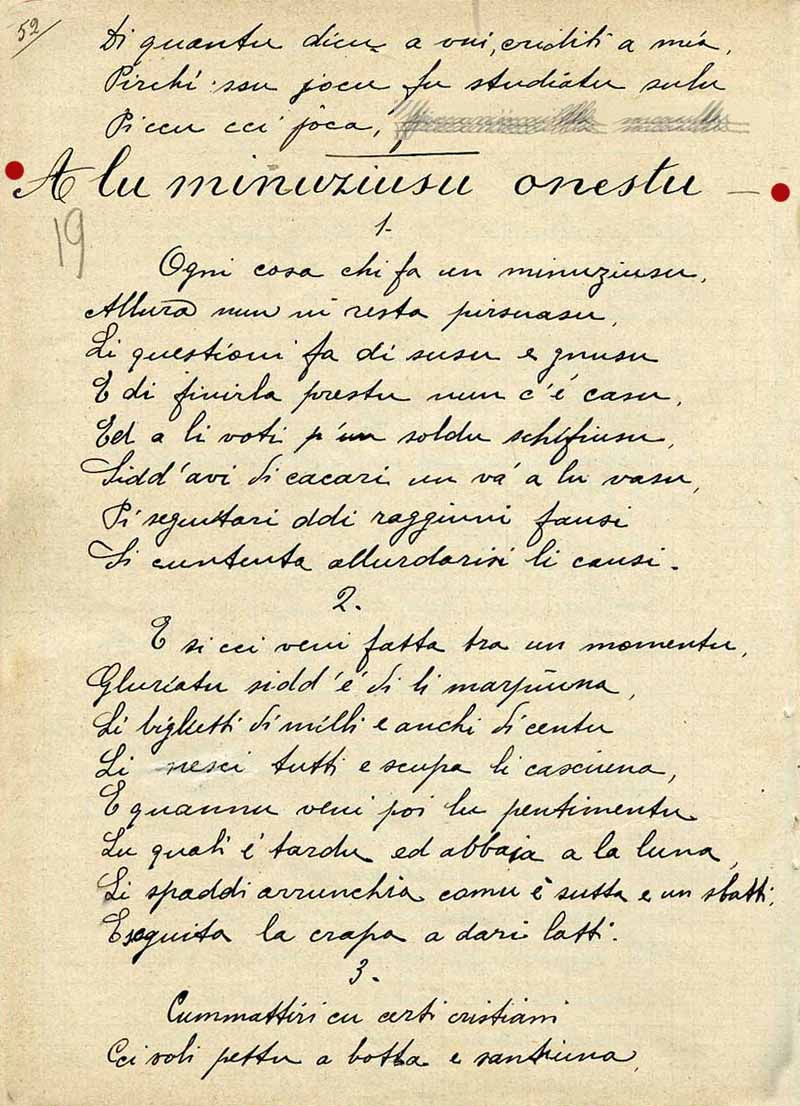 52
Di quantu dicu a vui, criditi a mia,
Pirchí ssu jocu fu studiatu sulu
Pi ccu cci jôca,
A lu minuziusu onestu —
19
1-
Ogni cosa chi fa un minuziusu,
Allura nun ni resta pirsuasu,
Li questioni fa di susu e gnusu
E di finirla prestu nun c'é casu,
Ed a li voti p'un soldu schifiusu,
Sidd'avi di cacari un vá a lu vasu,
Pí seguitari ddi raggiuni fausi
Si cuntenta allurdarisi li causi.
2.
E si cci veni fatta tra un momentu,
Gluriatu sidd'é di li marpiuna,
Li biglietti di milli e anchi di centu
Li nesci tutti e scupa li casciuna,
E quannu veni poi lu pentimentu
Lu quali é tardu ed abbaja a la luna,
Li spaddi arrunchia comu é sutta e un sbatti,
E seguita la crapa a dari latti.
3.
Cummattiri cu certi cristiani
Cci voli pettu a botta e santiuna,